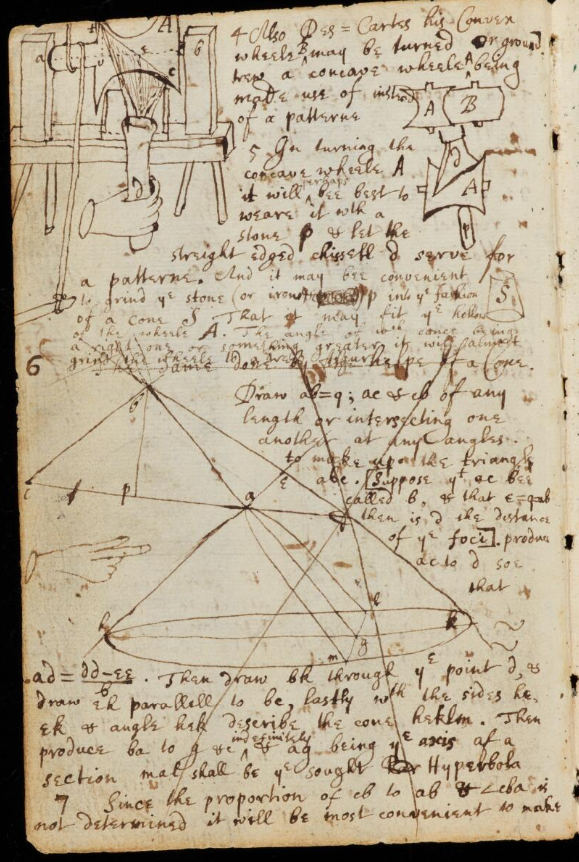 4 Also Des = Cartes his Convex
wheele B may be turned or ground
trew a concave wheele A being
made use of instead
of a patterne
5 In turning the
concave wheele A
it will perhaps bee best to
weare it wth a
stone p & let the
streight edged chissell d serve for
a patterne. And it may bee convenient
to grind ye stone (or iron) p into ye fashion
of a cone S. That it may fit ye hollow
of the wheele A. The angle of wch cone being
a right one or something greater it will almost
grind the wheele
6 The same done by the helpe of a Cone.
Draw ab=q; ac & cb of any
length or intersecting one
another at any angles.
to make upon the triangle
abc. [Suppose yt
called b, & that
then is d the distance
of ye foci]. produce
ac to d soe
that
ad = dd-ee/b. Then draw bk through ye point d, &
draw ek parallell to bc, lastly wth the sides he,
ek & angle hek describe the cone heklm. Then
produce ba to g indefinitely & ag being ye axis of a
section mal shall be ye sought for Hyperbola
7 Since the proportion of cb to ab & <cba is
not determined it will be most convenient to make
a
b
c
d
A
B
A
d
p
S
b
c
p
a
e
d
h
k
l
g
m